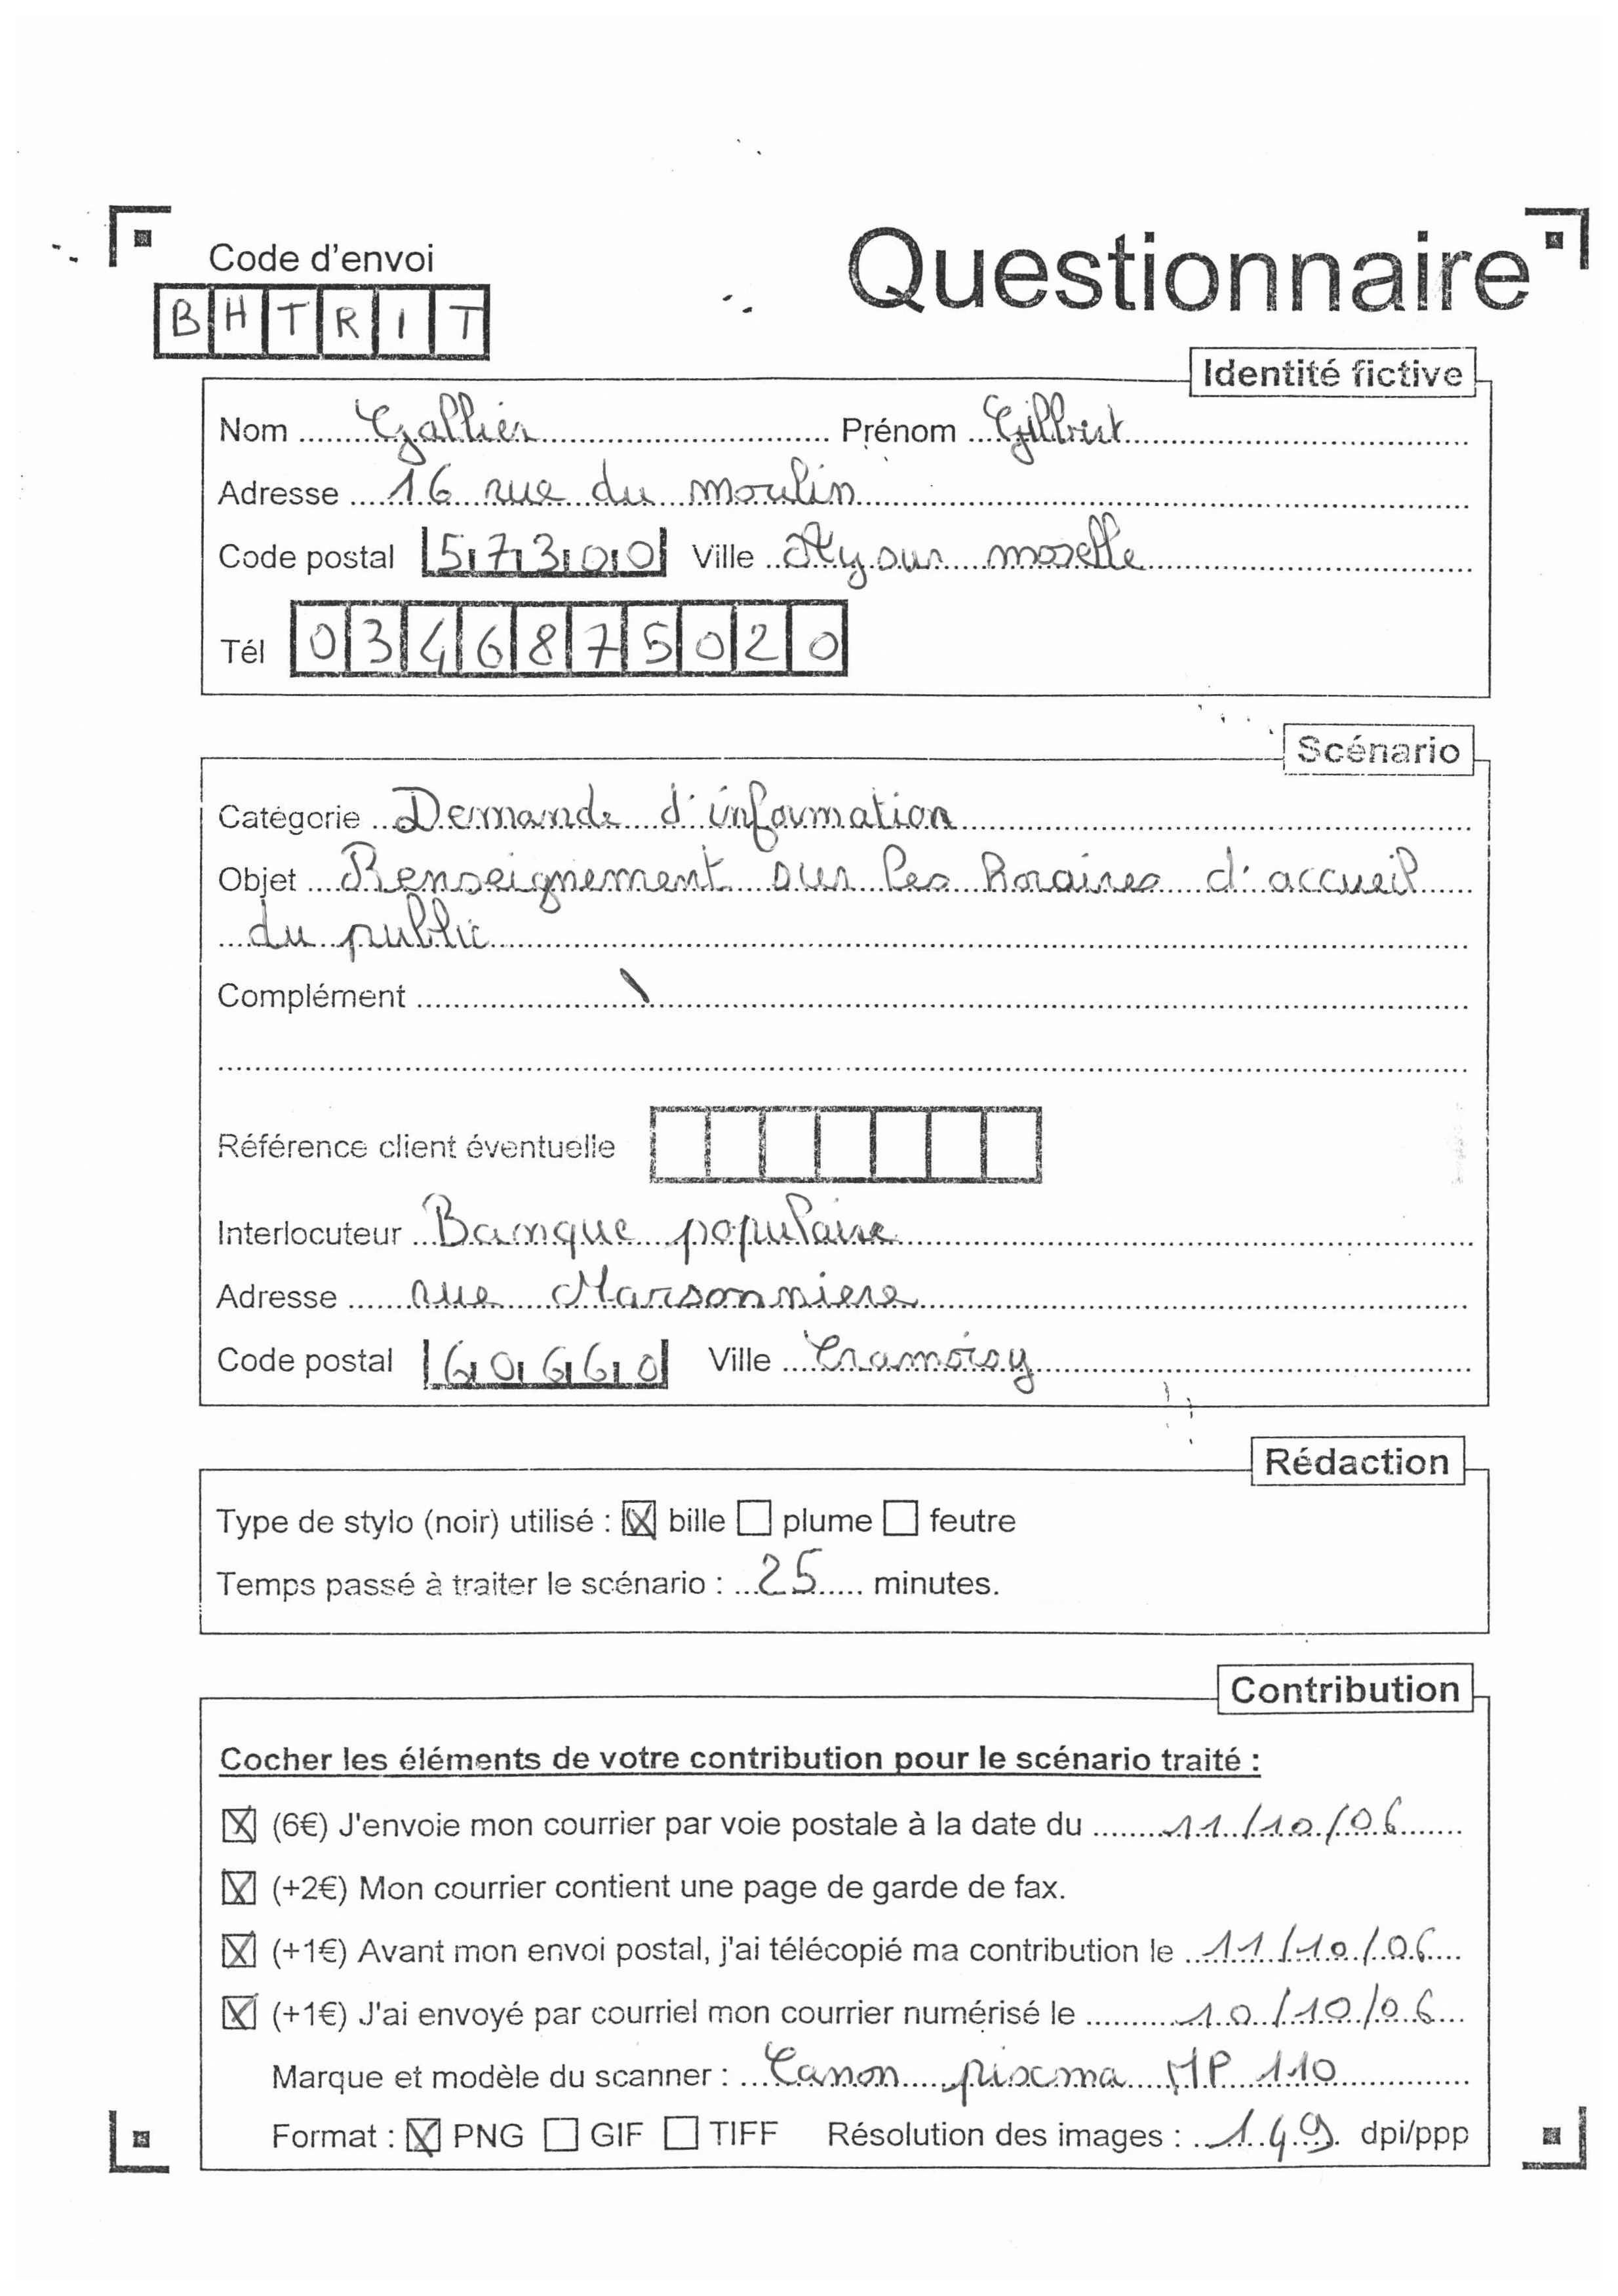 Questionnaire
Code d'envoi
BHTRIT
Identité fictive
Nom Gallier Prénom Gilbert
Adresse 16 rue du moulin
Code postal 57300 Ville Ay sur moselle
Tél 0346875020
Scénario
Catégorie Demande d'information
Objet Renseignement sur les horaires d'accueil
du public
Complément \
Référence client éventuelle
Interlocuteur Banque populaire
Adresse rue Marsonniere
Code postal 60660 Ville Cramoisy
Rédaction
Type de stylo (noir) utilisé : ☒ bille ☐ plume ☐ feutre
Temps passé à traiter le scénario : 25 minutes.
Contribution
Cocher les éléments de votre contribution pour le scénario traité :
☒ (6€) J'envoie mon courrier par voie postale à la date du 11/10/06
☒ (+2€) Mon courrier contient une page de garde de fax.
☒ (+1€) Avant mon envoi postal, j'ai télécopié ma contribution le 11/10/06
☒ (+1€) J'ai envoyé par courriel mon courrier numérisé le 10/10/06
Marque et modèle du scanner : Canon pixma MP 110
Format : ☒ PNG ☐ GIF ☐ TIFF Résolution des images : 149 dpi/ppp